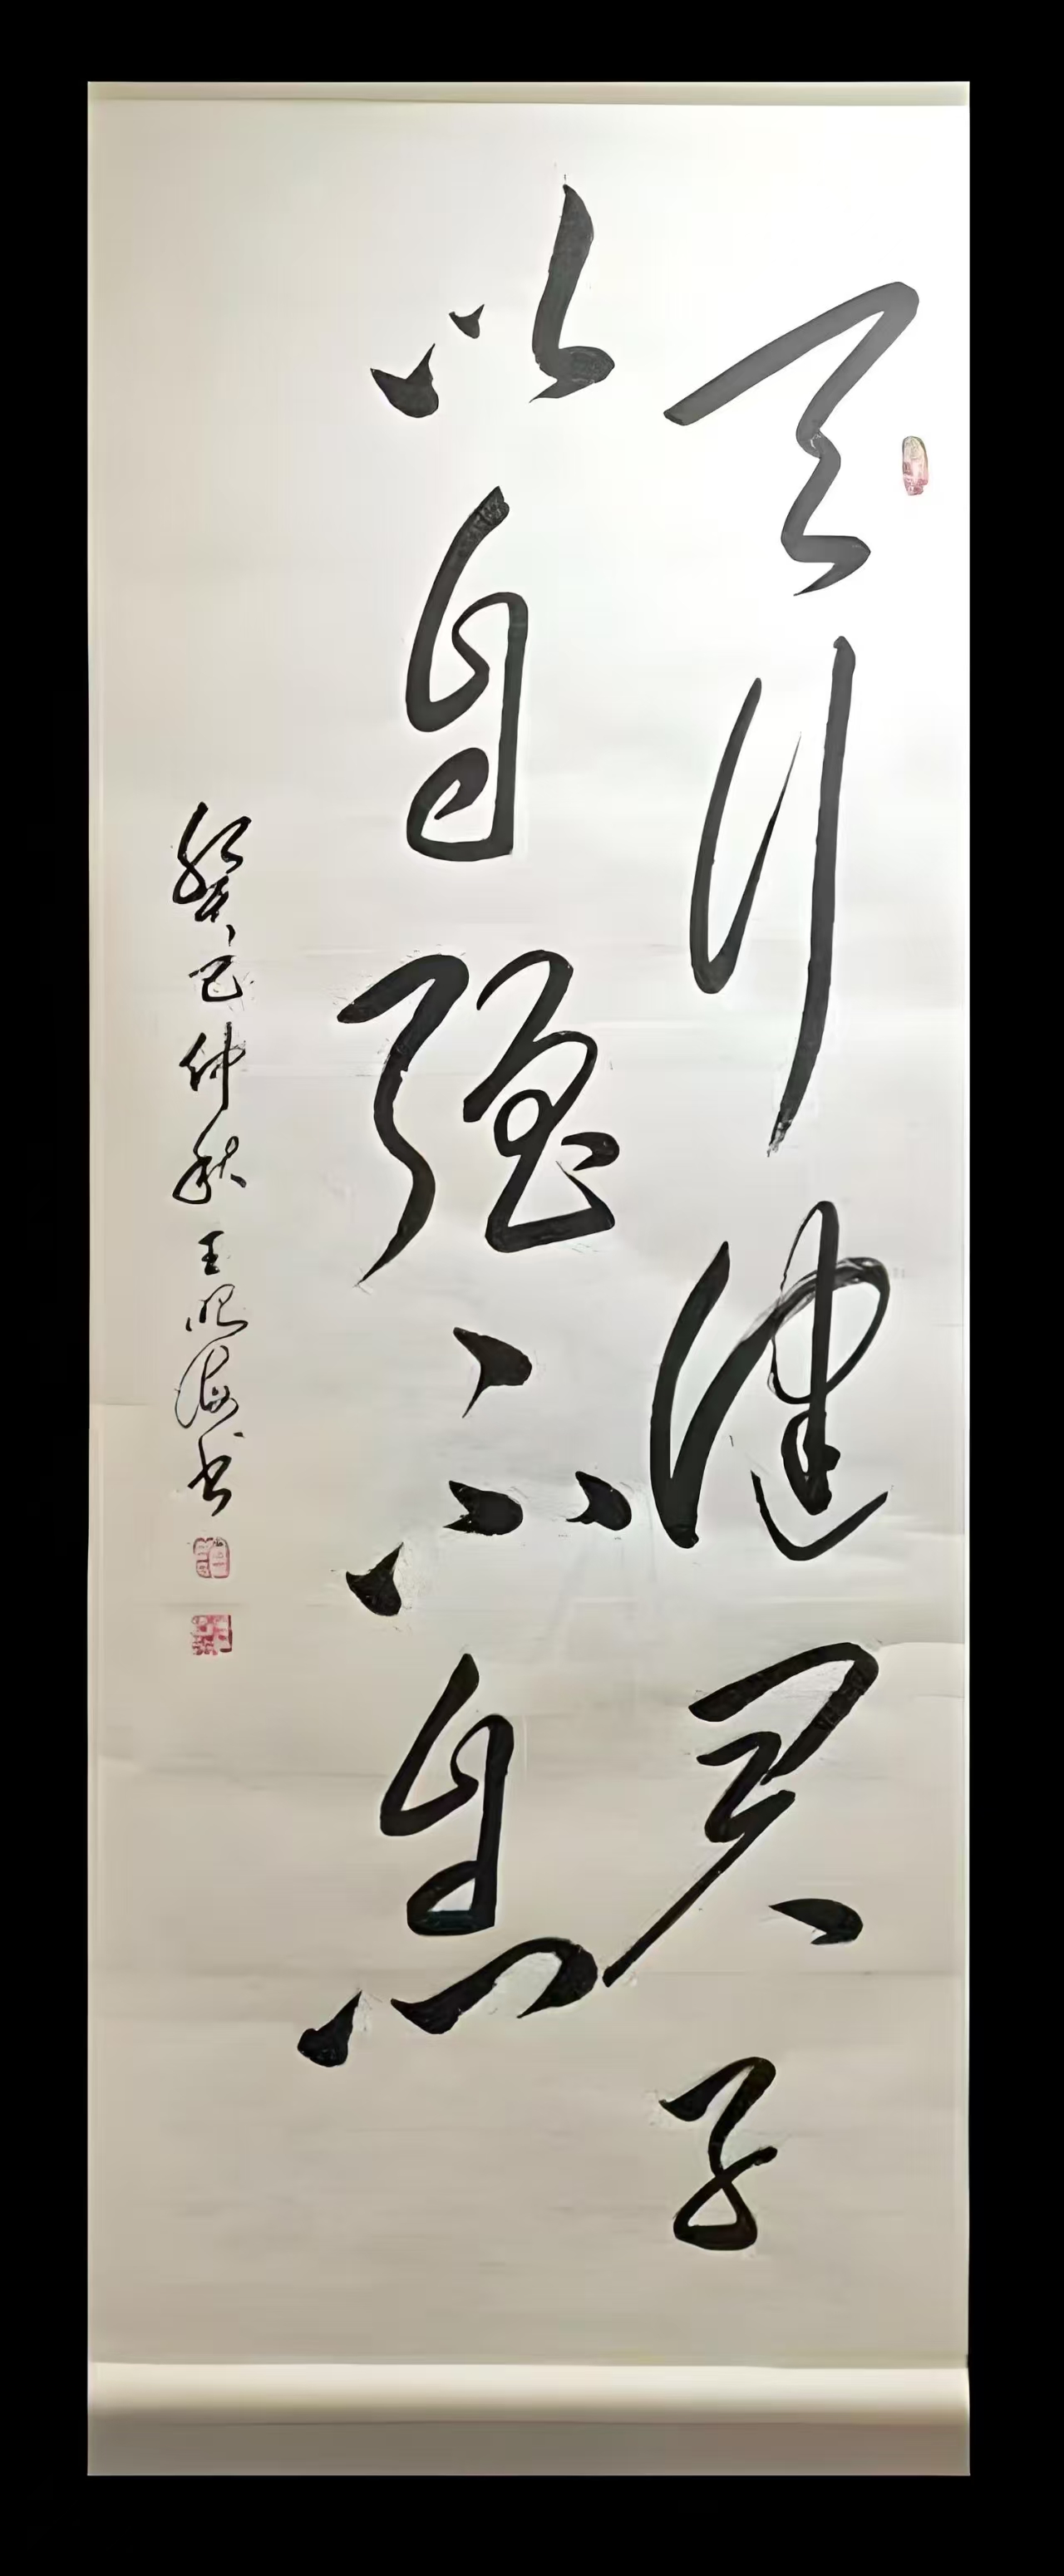 天行健君子
以自强不息
癸巳仲秋王晓海书